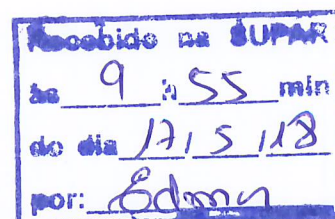 Recebido na SUPAR
às 9 h 55 min
do dia 17 / 5 / 18
por: